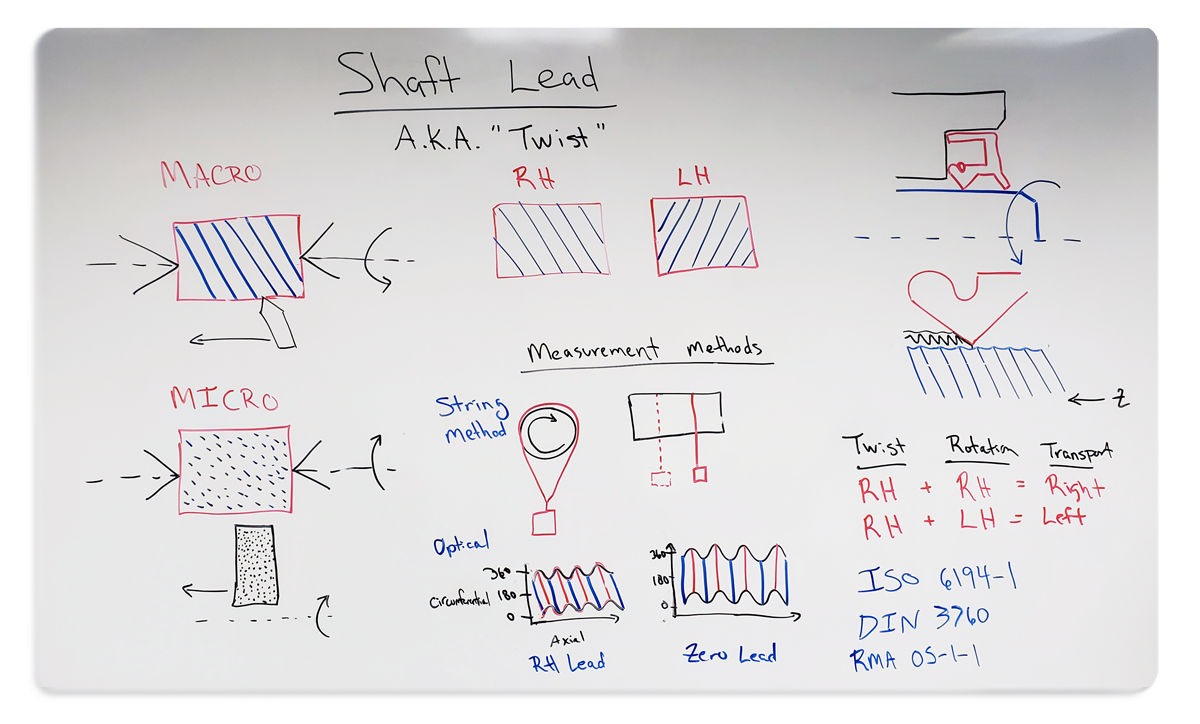 Shaft Lead
A.K.A. "Twist"
MACRO
RH
LH
MICRO
Measurement Methods
String
Method
Optical
360
Circumferential 180
0
Axial
RH Lead
360
180
0
Zero Lead
Z
Twist Rotation Transport
RH + RH = Right
RH + LH = Left
ISO 6194-1
DIN 3760
RMA OS-1-1